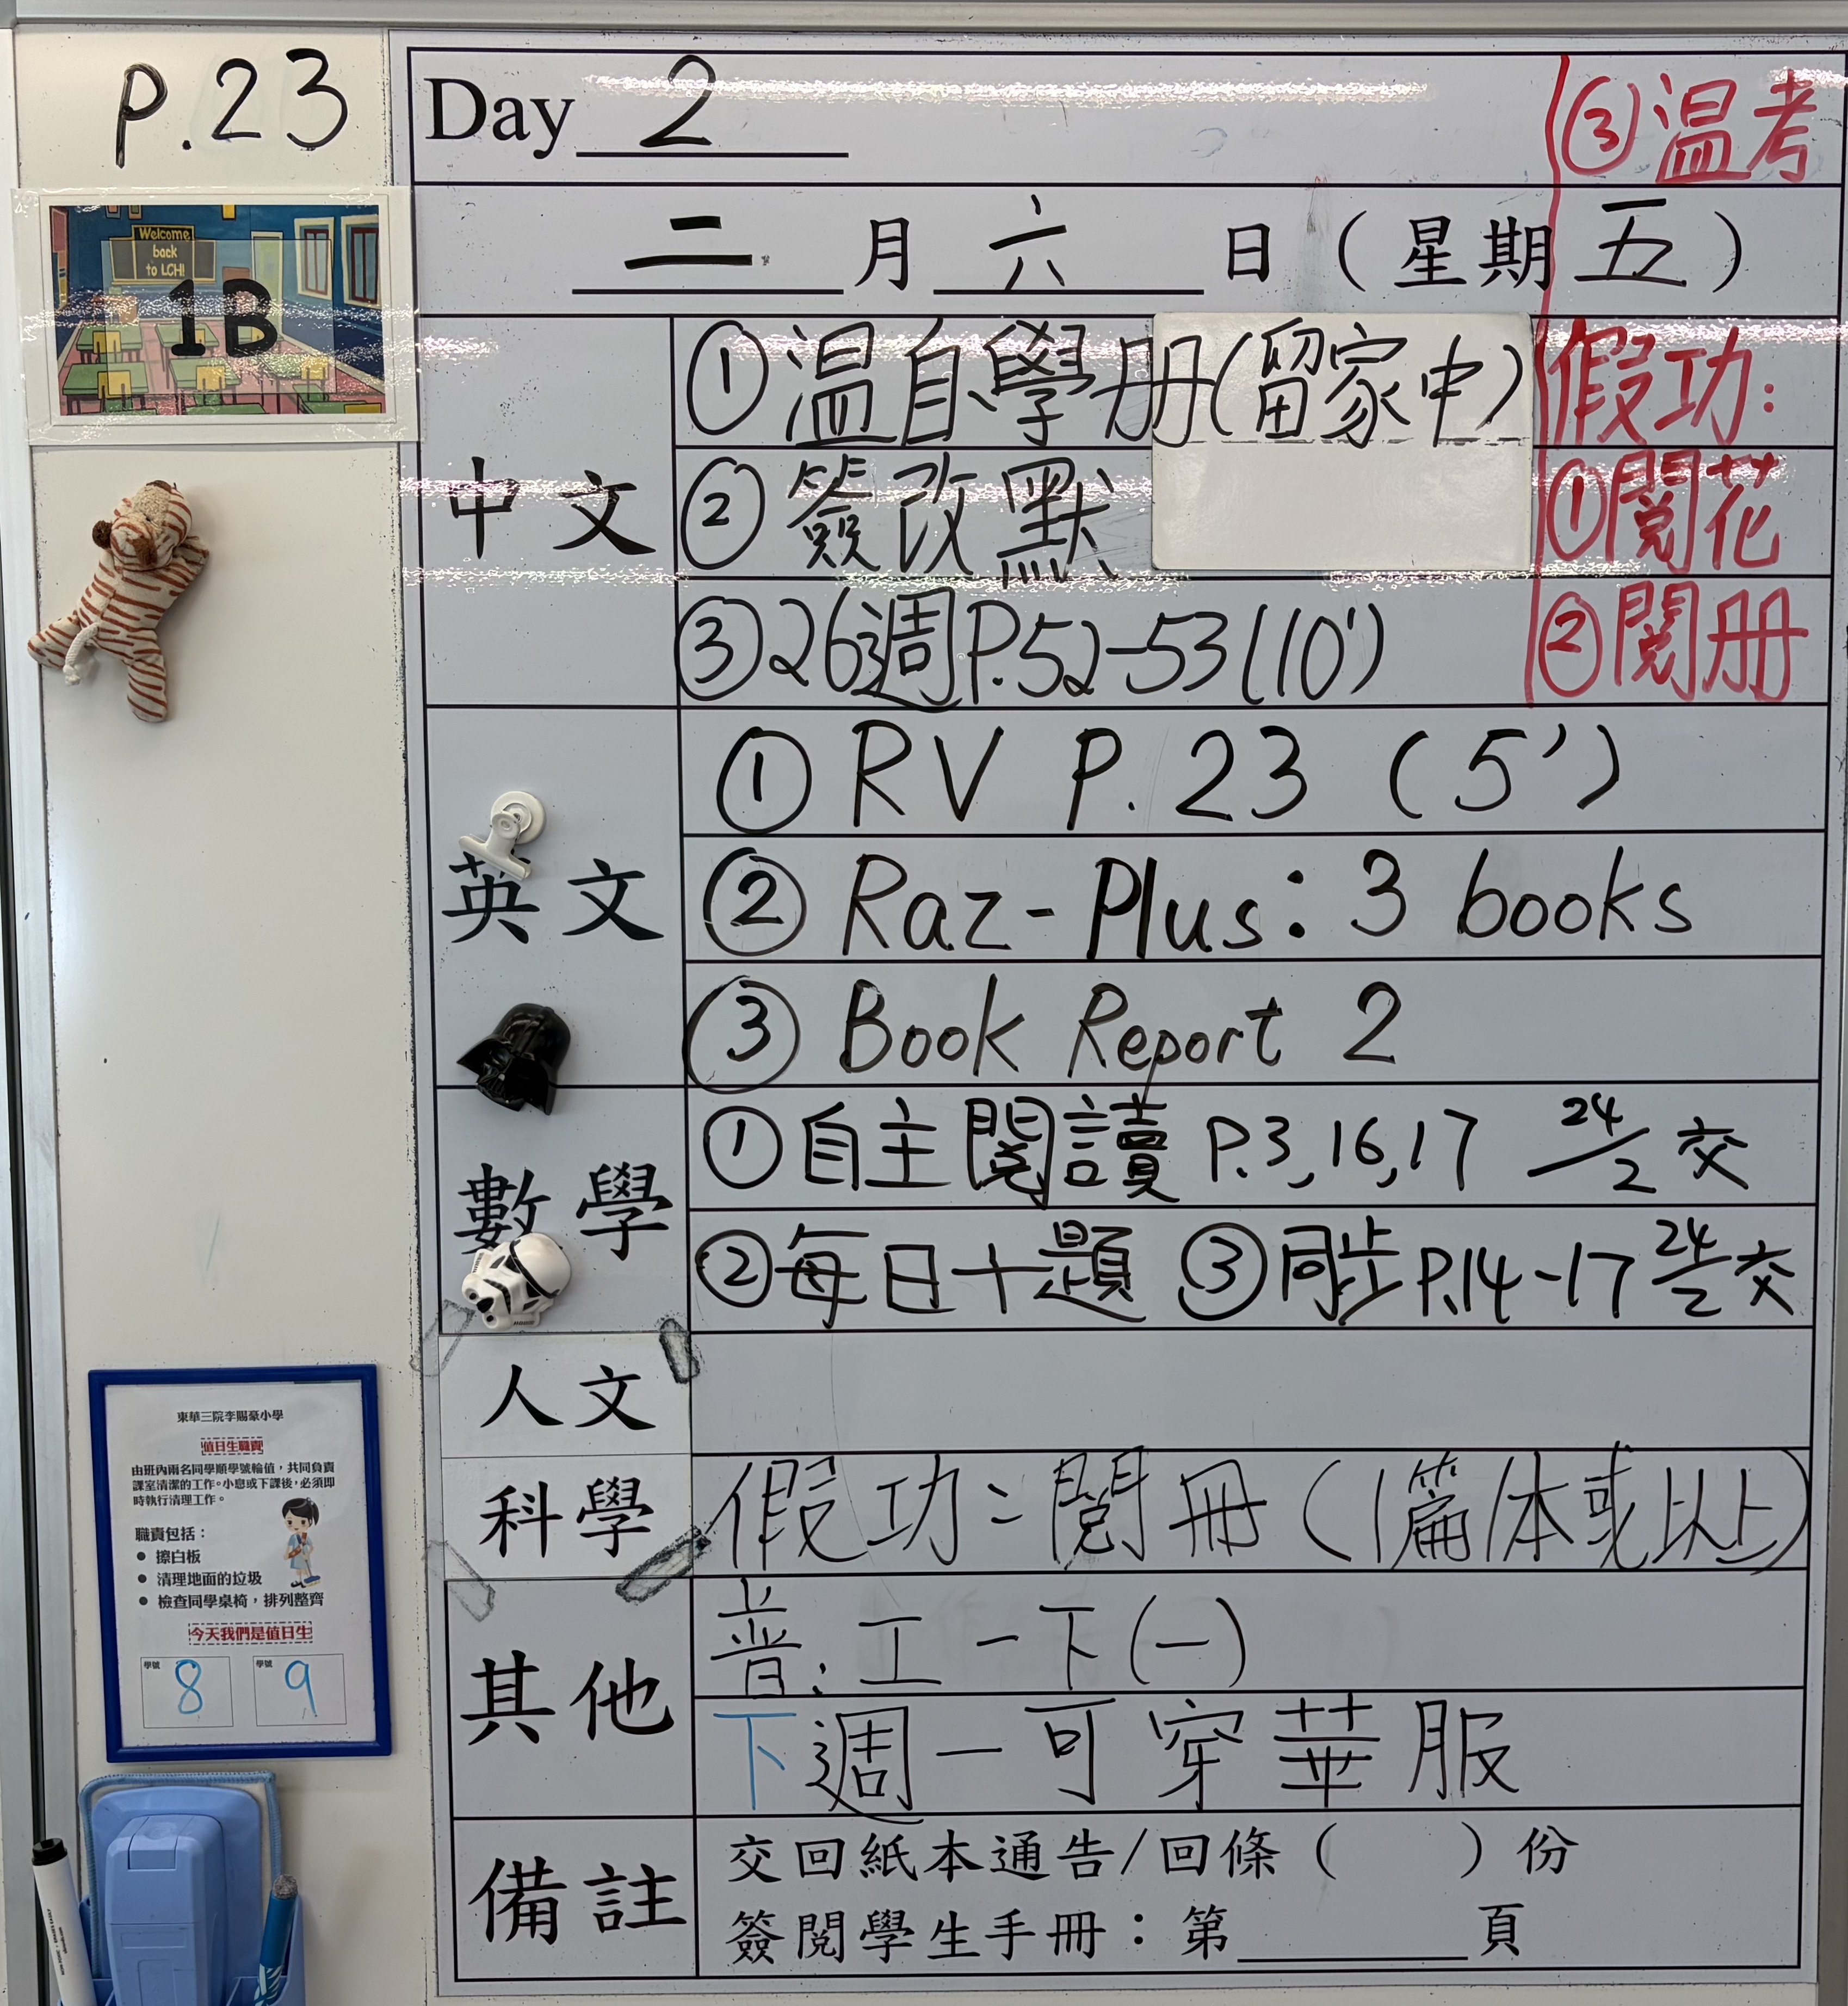 P.23
Day 2
③温考
二月六日（星期五）
Welcome
back
to LCH!
1B
中文
①温自學册(留家中)
②簽改默
③26週P.52-53(10')
假功:
①閱花
②閱册
英文
①RV P.23 (5')
②Raz-Plus: 3 books
③Book Report 2
數學
①自主閱讀 P.3,16,17 24/2交
②每日十題 ③同步P.14-17 24/2交
人文
科學
假功:閱冊(1篇/本或以上)
其他
普:工一下(一)
下週一可穿華服
備註
交回紙本通告/回條（ ）份
簽閱學生手冊：第______頁
東華三院李賜豪小學
值日生職責
由班內兩名同學順學號輪值，共同負責
課室清潔的工作。小息或下課後，必須即
時執行清理工作。
職責包括：
● 擦白板
● 清理地面的垃圾
● 檢查同學桌椅，排列整齊
今天我們是值日生
學號 8 學號 9